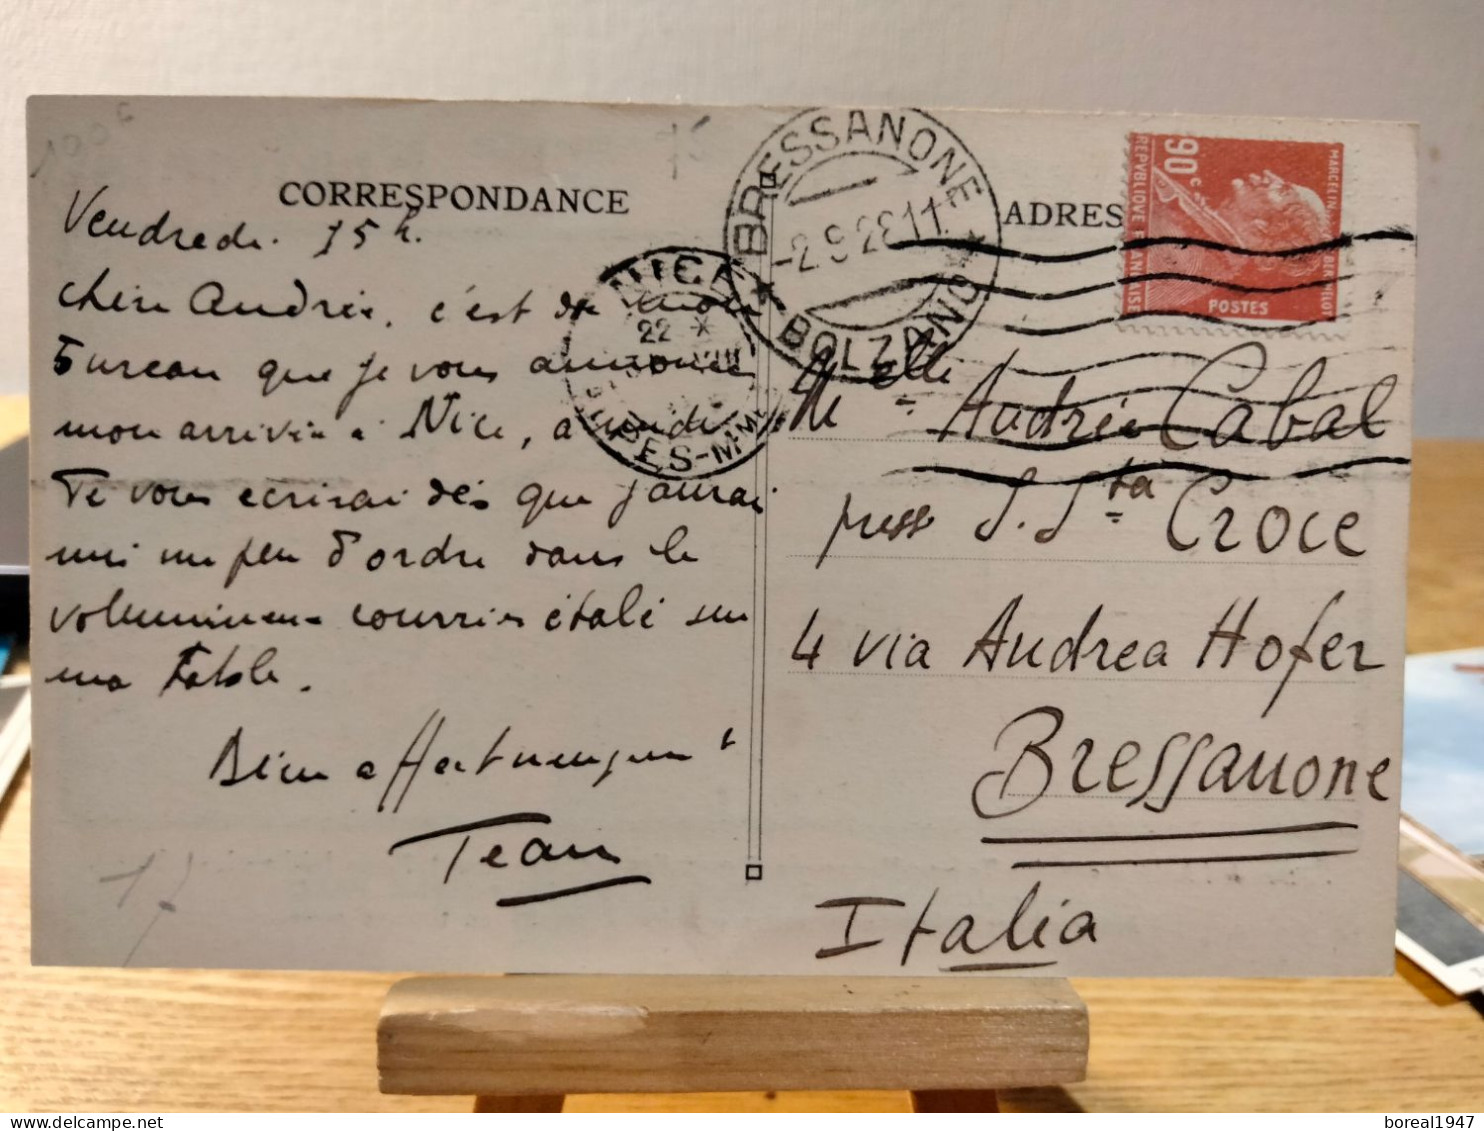 CORRESPONDANCE
Vendredi. 15 h.
chère Andrée, c'est de mon
bureau que je vous annonce
mon arrivée à Nice, à midi.
Je vous ecrirai dès que j'aurai
mis un peu d'ordre dans le
volumineux courrier étalé sur
ma table.
Bien affectueusement
Jean
NICE
22
ALPES-MMES
BRESSANONE
-2.9.28.11
BOLZANO
ADRES
90c
REPVBLIQVE FRANÇAISE
POSTES
MARCELIN BERTHELOT
Melle Andrée Cabal
press S. Sta Croce
4 via Andrea Hofer
Bressanone
Italia
boreal1947